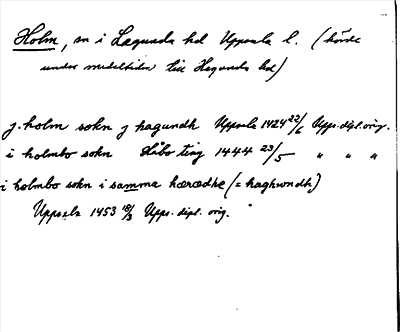 Holm, sn i Lagunda hd Uppsala l. (hörde
under medeltiden till Hagunda hd)
j. holm sokn j hagundh Uppsala 1424 22/6 Upps. dipl. orig.
i holmbo sokn Håbo ting 1444 23/5 " " "
i holmbo sokn i samma hærædhe (= haghwndh)
Uppsala 1453 18/3 Upps. dipl. orig.